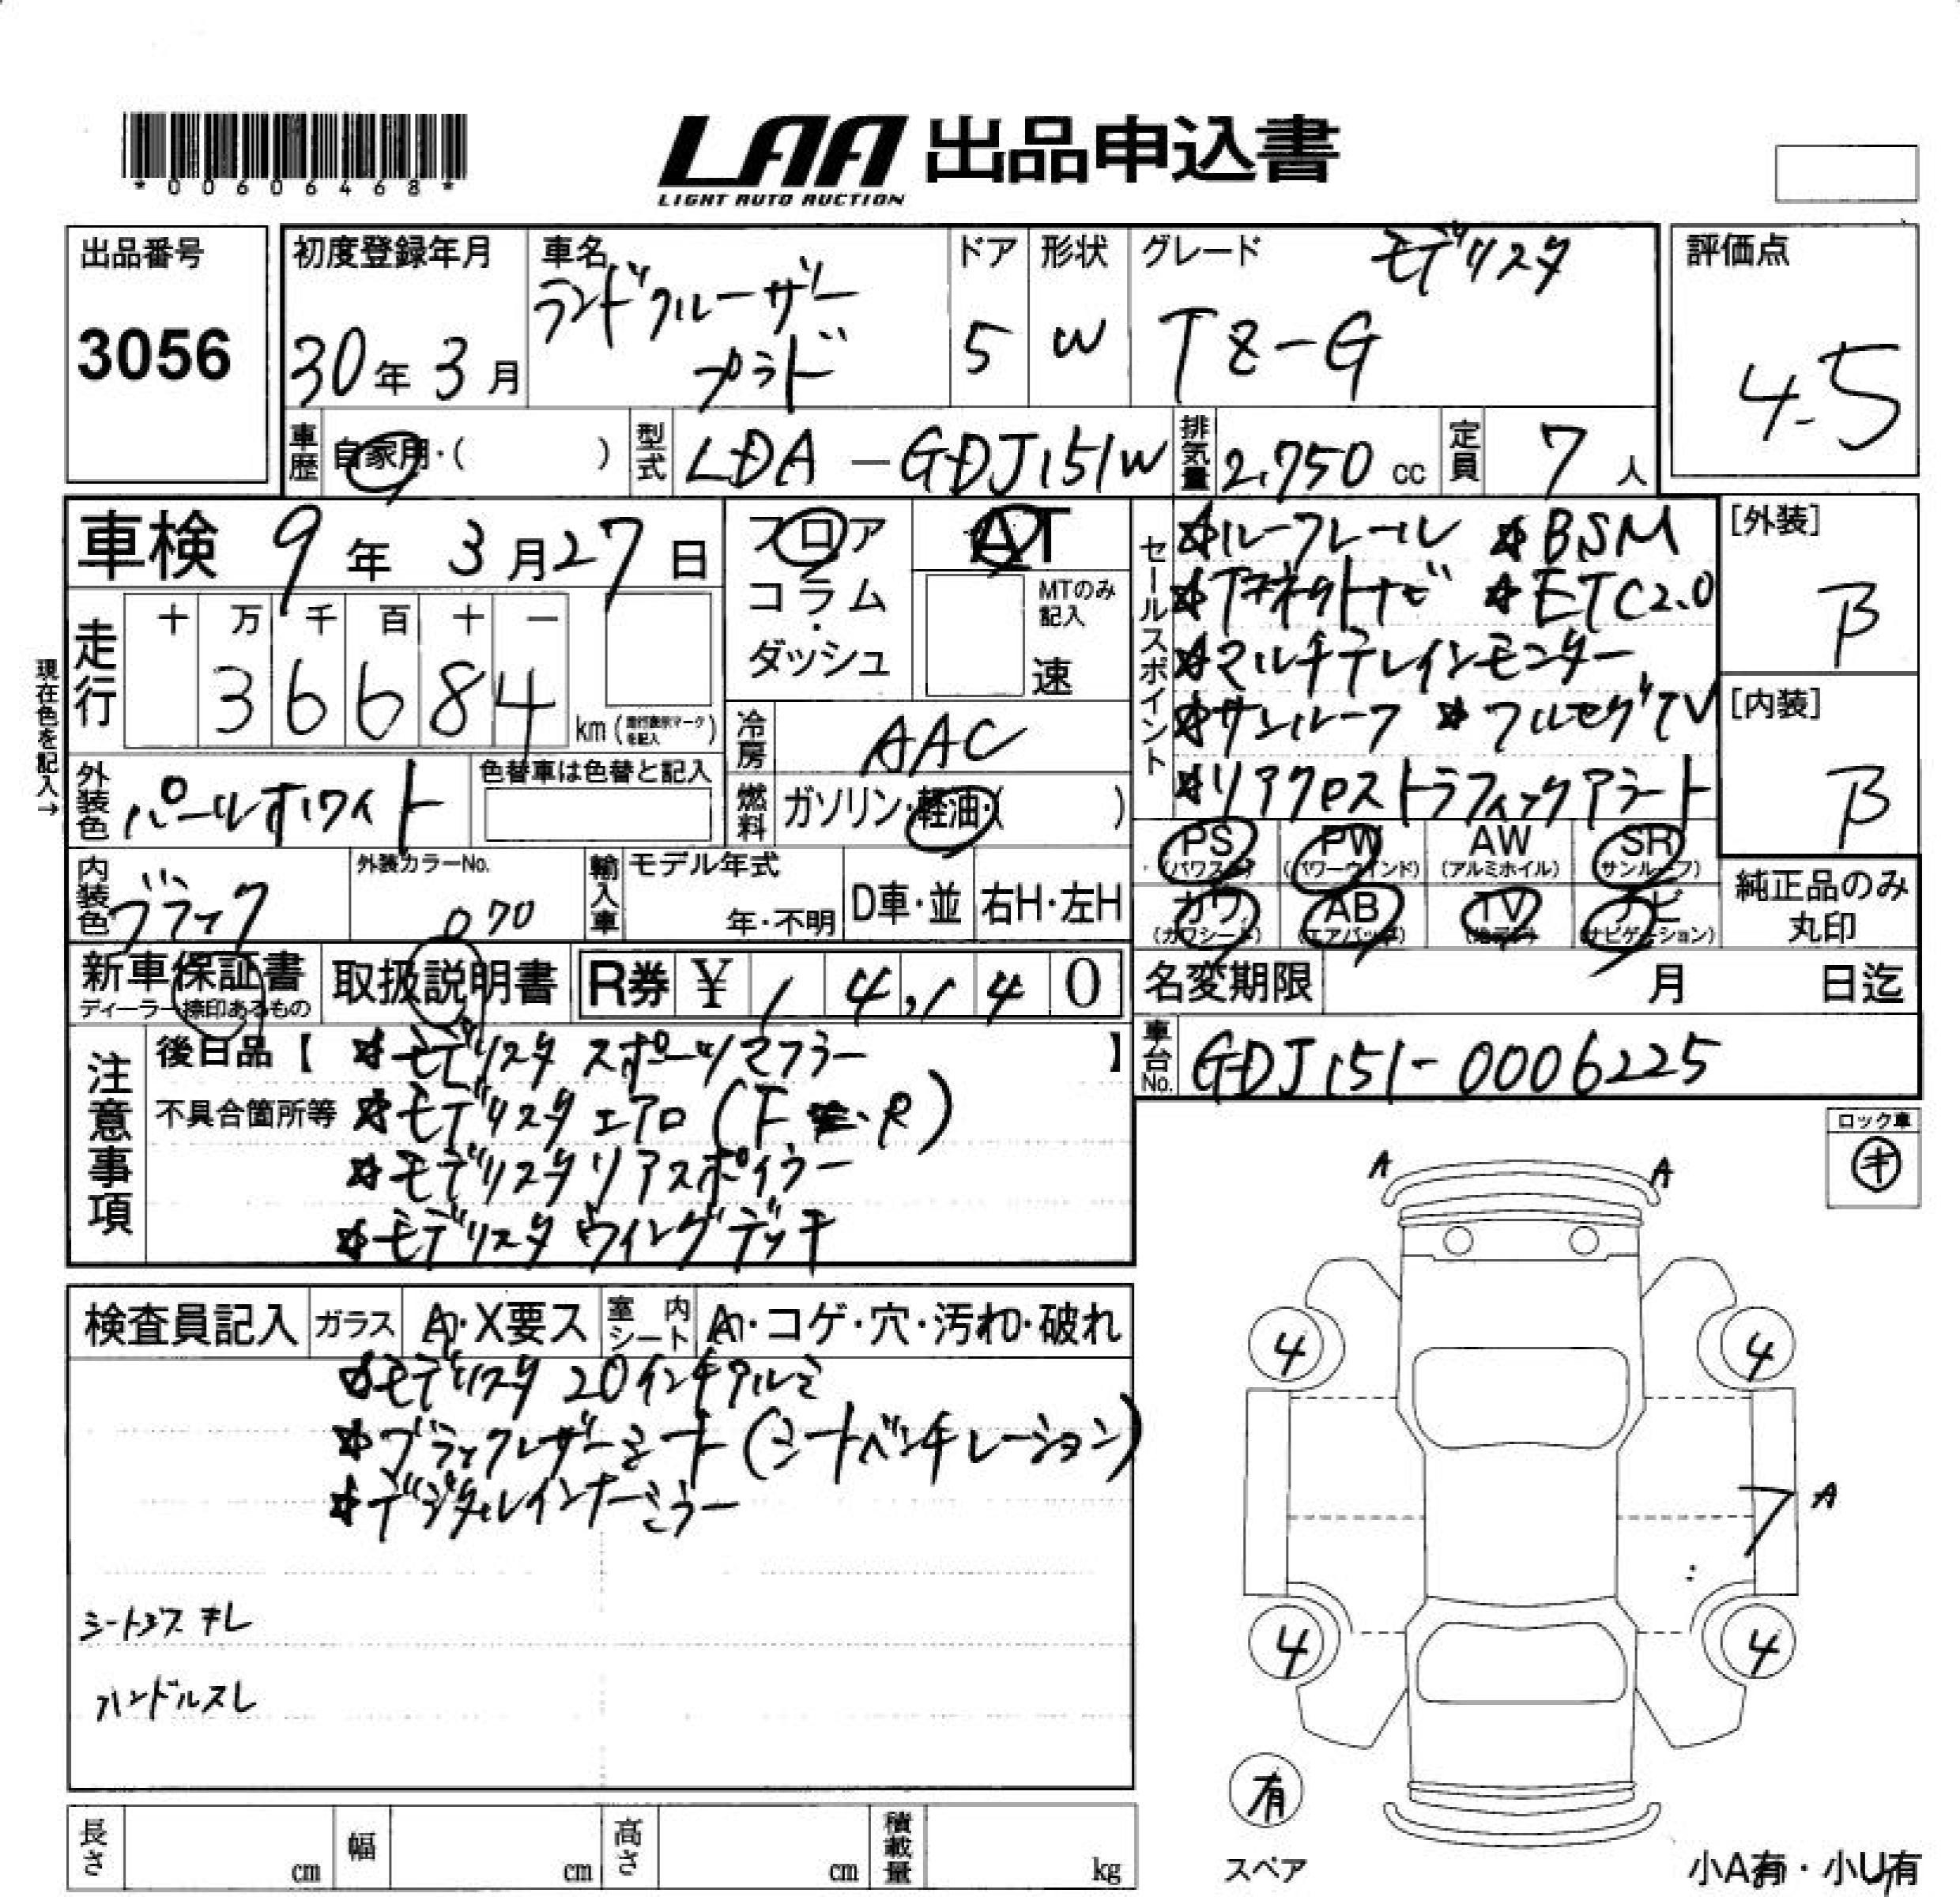 *00606468*
LAA 出品申込書
LIGHT AUTO AUCTION
出品番号
3056
初度登録年月
30年 3月
車名
ランドクルーザー
プラド
ドア
5
形状
W
グレード
モデリスタ
TZ-G
評価点
4.5
車歴
自家用・( )
型式
LDA-GDJ151W
排気量
2,750 cc
定員
7人
車検 9年 3月27日
走行
十 万 千 百 十 一
3 6 6 8 4
km (走行表示マークを記入)
現在色を記入→
外装色
パールホワイト
色替車は色替と記入
内装色
ブラック
外装カラーNo.
070
フロア
コラム
・
ダッシュ
AT
MTのみ
記入
速
冷房
AAC
燃料
ガソリン・軽油・( )
輸入車
モデル年式
年・不明
D車・並
右H・左H
セールスポイント
☆ルーフレール ☆BSM
☆Tコネクトナビ ☆ETC2.0
☆マルチテレインモニター
☆サンルーフ ☆フルセグTV
☆リアクロストラフィックアラート
[外装]
B
[内装]
B
PS (パワステ)
PW (パワーウインド)
AW (アルミホイル)
SR (サンルーフ)
カワ (カワシート)
AB (エアバッグ)
TV
ナビ (ナビゲーション)
純正品のみ
丸印
新車保証書
ディーラー捺印あるもの
取扱説明書
R券 ¥ 14,140
名変期限 月 日迄
車台No.
GDJ151-0006225
注意事項
後日品【 】
☆モデリスタ スポーツマフラー
不具合箇所等
☆モデリスタ エアロ (F・R)
☆モデリスタ リアスポイラー
☆モデリスタ ウイングデッキ
ロック車
キ
検査員記入
ガラス
A・X要ス
室内
シート
A・コゲ・穴・汚れ・破れ
☆モデリスタ 20インチアルミ
☆ブラックレザーシート (シートベンチレーション)
☆デジタルインナーミラー
シートスス キレ
ハンドルスレ
A A
4 4
A
4 4
有
スペア
小A有・小U有
長さ cm
幅 cm
高さ cm
積載量 kg